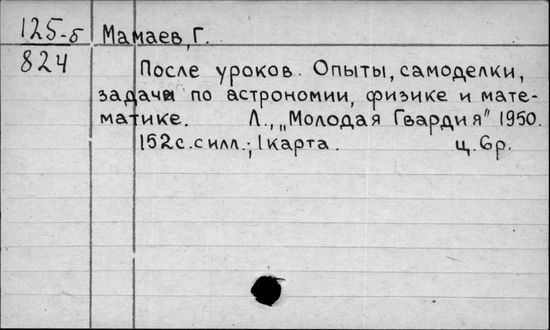 125-б Мамаев, Г.
824
После уроков. Опыты, самоделки,
задачи по астрономии, физике и мате-
матике. Л., „Молодая Гвардия" 1950.
152с. с илл.; 1 карта. ц. 6р.